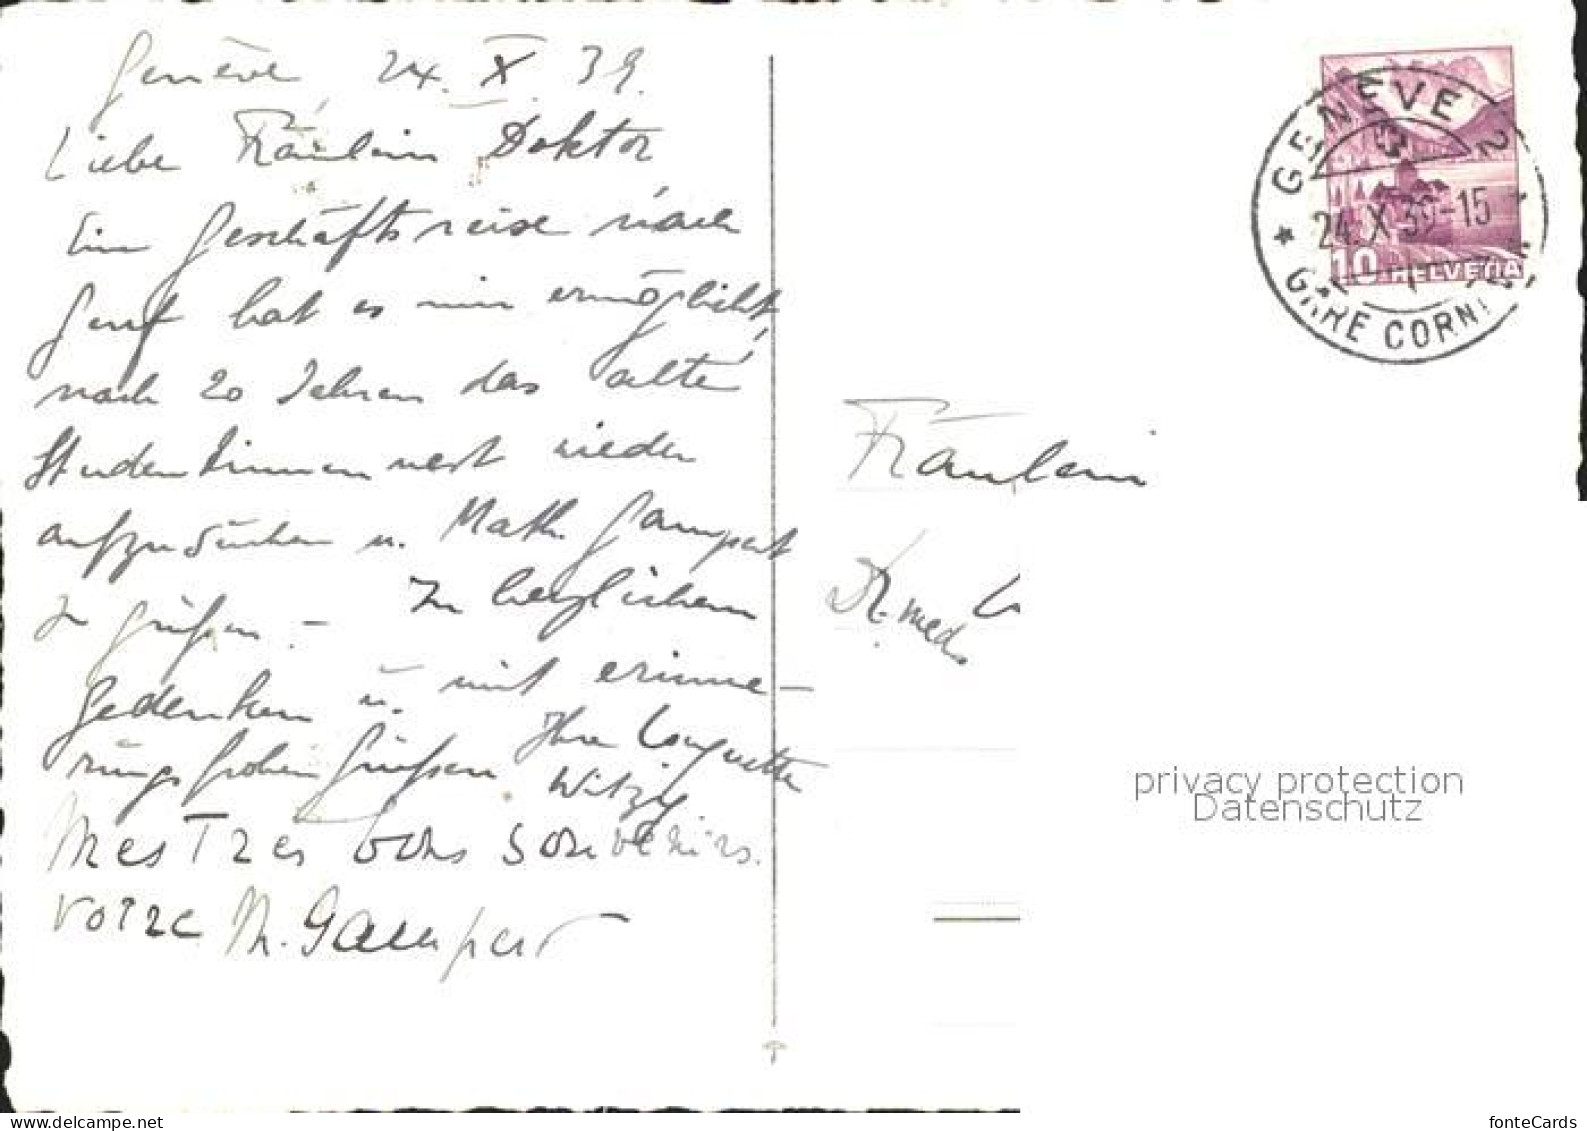 Genève 24. X. 39.
Liebe Fräulein Doktor
Eine Geschäftsreise nach
Genf hat es mir ermöglicht,
nach 20 Jahren das alte
Studentinnennest wieder
aufzusuchen u. Math. Gampert
zu grüssen. – In herzlichem
Gedenken u. mit erinne-
rungsfrohen Grüssen Ihre
Witzig
Mes Tres bons souvenirs.
votre M. Gampert
GENEVE 2
24.X.39-15
GARE CORN
10 HELVETIA
Fräulein
Dr. med.
privacy protection
Datenschutz
www.ansichtskartenversand.com
fonteCards